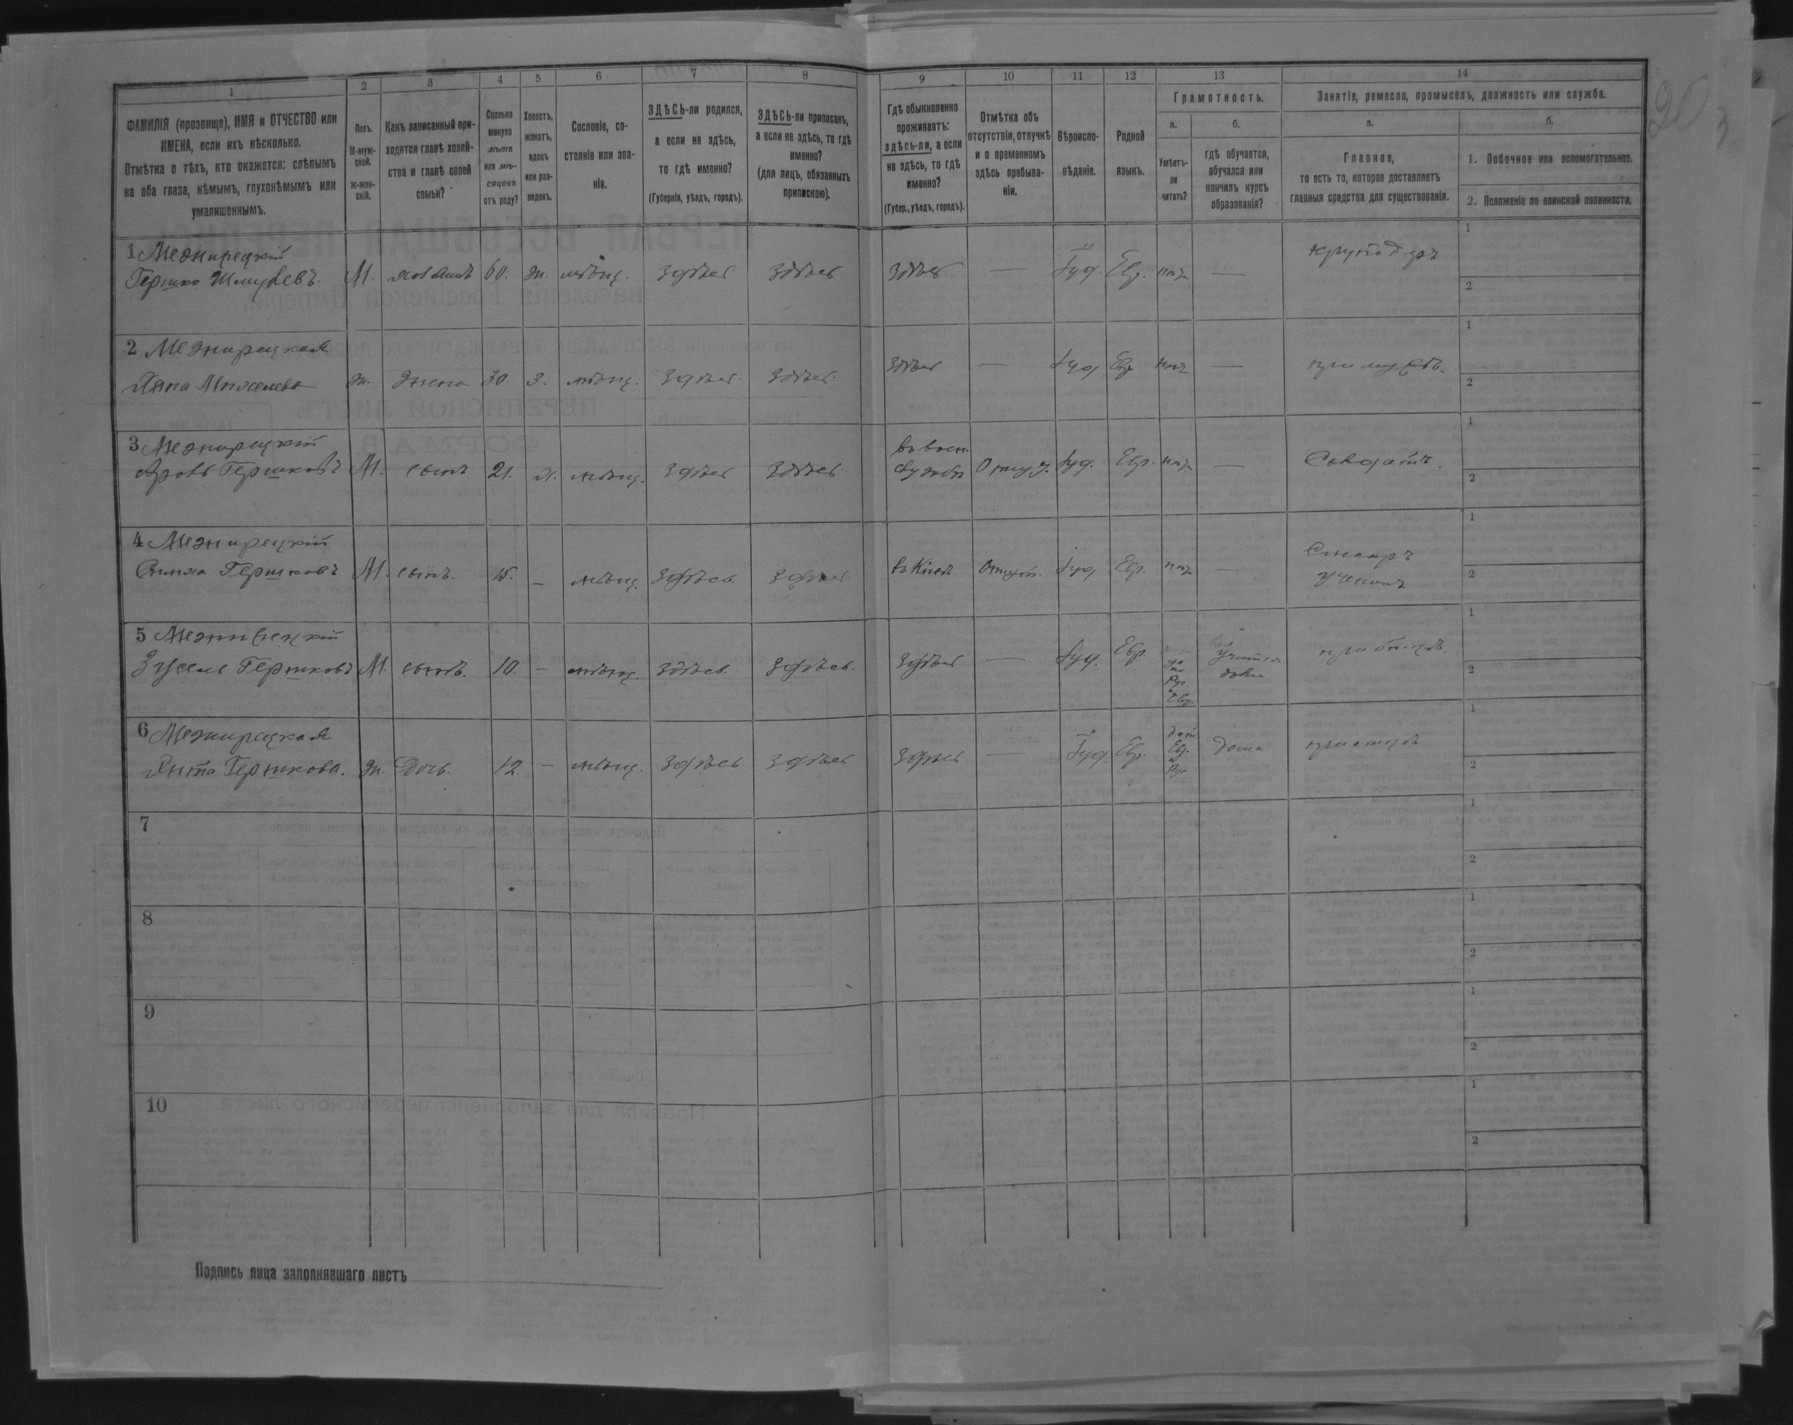 1
2
3
4
5
6
7
8
9
10
11
12
13
14
Грамотность.
Занятіе, ремесло, промыселъ, должность или служба.
а.
б.
а.
б.
ФАМИЛІЯ (прозвище), ИМЯ и ОТЧЕСТВО или
ИМЕНА, если ихъ нѣсколько.
Отмѣтка о тѣхъ, кто окажется: слѣпымъ
на оба глаза, нѣмымъ, глухонѣмымъ или
умалишеннымъ.
Полъ.
М-муж-
ской.
Ж-жен-
скій.
Какъ записанный при-
ходится главѣ хозяй-
ства и главѣ своей
семьи?
Сколько
минуло
лѣтъ
или мѣ-
сяцевъ
отъ роду?
Холостъ,
женатъ,
вдовъ
или раз-
веденъ.
Сословіе, со-
стояніе или зва-
ніе.
ЗДѢСЬ-ли родился,
а если не здѣсь,
то гдѣ именно?
(Губернія, уѣздъ, городъ).
ЗДѢСЬ-ли приписанъ,
а если не здѣсь, то гдѣ
именно?
(для лицъ, обязанныхъ
припискою).
Гдѣ обыкновенно
проживаетъ:
здѣсь-ли, а если
не здѣсь, то гдѣ
именно?
(Губер., уѣздъ, городъ).
Отмѣтка объ
отсутствіи, отлучкѣ
и о временномъ
здѣсь пребыва-
ніи.
Вѣроиспо-
вѣданіе.
Родной
языкъ.
Умѣетъ-
ли
читать?
гдѣ обучается,
обучался или
кончилъ курсъ
образованія?
Главное,
то есть то, которое доставляетъ
главныя средства для существованія.
1. Побочное или вспомогательное.
2. Положеніе по воинской повинности.
1 Межирецкій
Гершко Шмулевъ М. хозяинъ 60. ж. мѣщ. здѣсь здѣсь здѣсь — Іуд. Евр. нѣтъ —
1
2
2 Межирецкая
Мошкова ж. жена 30 з. мѣщ. здѣсь здѣсь. здѣсь — Іуд Евр нѣтъ — при мужѣ.
1
2
3 Межирецкій
Гершковъ М. сынъ 21. х. мѣщ. здѣсь здѣсь. въ воен. службѣ Отлуч. Іуд. Евр. нѣтъ — Солдатъ.
1
2
4 Межирецкій
Симха Гершковъ М. сынъ. 15. — мѣщ. здѣсь. здѣсь въ Кіевѣ Отлуч. Іуд Евр. нѣтъ —
Столяръ
ученикъ
1
2
5 Межирецкій
Зусель Гершковъ М. сынъ. 10. — мѣщ. здѣсь. здѣсь. здѣсь — Іуд. Евр при отцѣ.
1
2
6 Межирецкая
Гершкова. ж. Дочь. 12 — мѣщ. здѣсь здѣсь здѣсь — Іуд. Евр. дома при отцѣ
1
2
7
1
2
8
1
2
9
1
2
10
1
2
Подпись лица заполнявшаго листъ
20